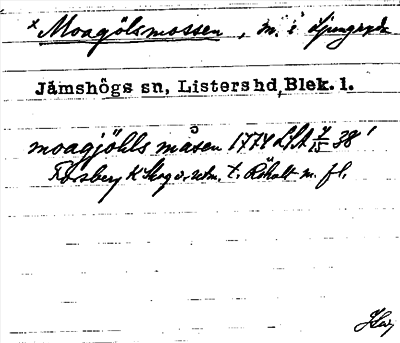 x Moagölsmossen, m. i Ljungryda
Jämshögs sn, Listershd, Blek. l.
moagjöhls måsen 1774 LSA 38
Forsberg K Skog o. utm. t. Röholt m. fl.